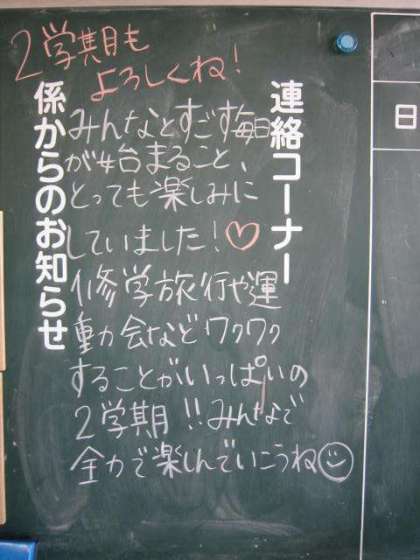 2学期も
よろしくね!
連絡コーナー
係からのお知らせ
みんなとすごす毎日
が始まること、
とっても楽しみに
していました!♡
修学旅行や運
動会などワクワク
することがいっぱいの
2学期!!みんなで
全力で楽しんでいこうね☺
日